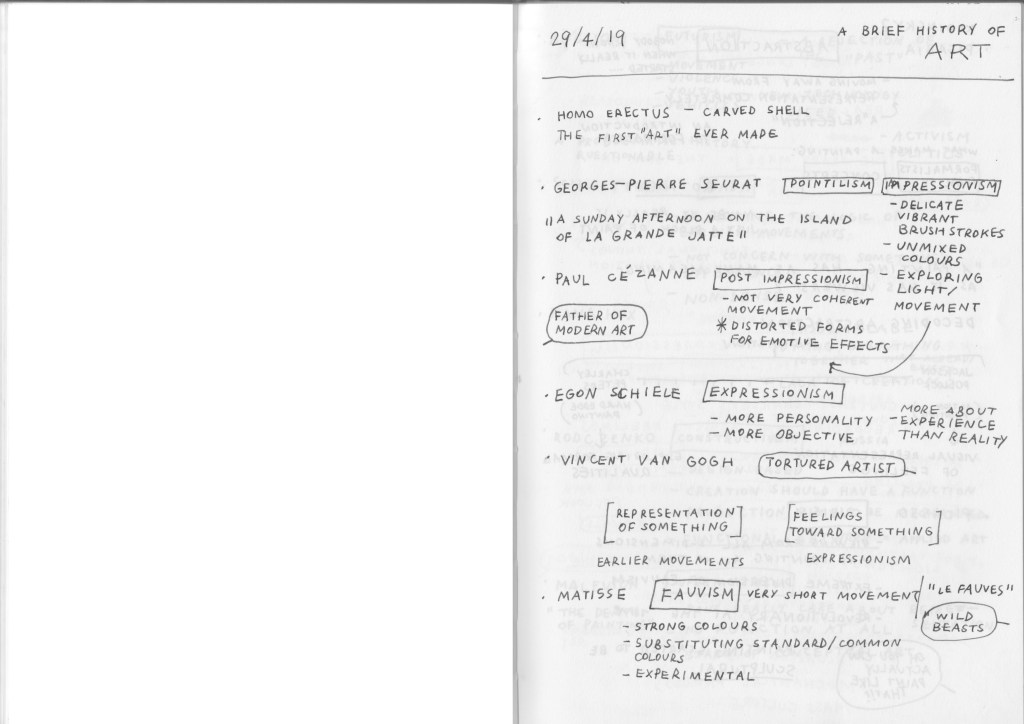 29/4/19
A BRIEF HISTORY OF
ART
· HOMO ERECTUS – CARVED SHELL
THE FIRST "ART" EVER MADE
· GEORGES-PIERRE SEURAT POINTILISM IMPRESSIONISM
– DELICATE
VIBRANT
BRUSH STROKES
– UNMIXED
COLOURS
– EXPLORING
LIGHT/
MOVEMENT
"A SUNDAY AFTERNOON ON THE ISLAND
OF LA GRANDE JATTE"
· PAUL CÉZANNE POST IMPRESSIONISM
FATHER OF
MODERN ART
– NOT VERY COHERENT
MOVEMENT
* DISTORTED FORMS
FOR EMOTIVE EFFECTS
· EGON SCHIELE EXPRESSIONISM
– MORE PERSONALITY
– MORE OBJECTIVE
– MORE ABOUT
EXPERIENCE
THAN REALITY
· VINCENT VAN GOGH TORTURED ARTIST
[REPRESENTATION
OF SOMETHING]
EARLIER MOVEMENTS
[FEELINGS
TOWARD SOMETHING]
EXPRESSIONISM
· MATISSE FAUVISM VERY SHORT MOVEMENT / "LE FAUVES"
* WILD
BEASTS
– STRONG COLOURS
– SUBSTITUTING STANDARD/COMMON
COLOURS
– EXPERIMENTAL